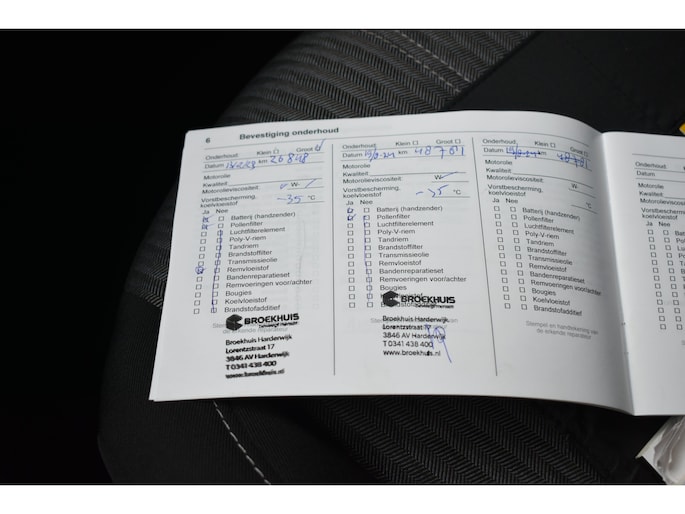 6 Bevestiging onderhoud
Onderhoud: Klein Groot
Datum km 26848
Motorolie
Kwaliteit
Motorolieviscositeit: W-
Vorstbescherming, koelvloeistof -35 °C
Ja Nee
Batterij (handzender)
Pollenfilter
Luchtfilterelement
Poly-V-riem
Tandriem
Brandstoffilter
Transmissieolie
Remvloeistof
Bandenreparatieset
Remvoeringen voor/achter
Bougies
Koelvloeistof
Brandstofadditief
BROEKHUIS
beweegt mensen
Broekhuis Harderwijk
Lorentzstraat 17
3846 AV Harderwijk
T 0341 438 400
www.broekhuis.nl
Onderhoud: Klein Groot
Datum km 48781
Motorolie
Kwaliteit
Motorolieviscositeit: W-
Vorstbescherming, koelvloeistof -35 °C
Ja Nee
Batterij (handzender)
Pollenfilter
Luchtfilterelement
Poly-V-riem
Tandriem
Brandstoffilter
Transmissieolie
Remvloeistof
Bandenreparatieset
Remvoeringen voor/achter
Bougies
BROEKHUIS
beweegt mensen
Broekhuis Harderwijk
Lorentzstraat
3846 AV Harderwijk
T 0341 438 400
www.broekhuis.nl
Onderhoud: Klein Groot
Datum km 48781
Motorolie
Kwaliteit
Motorolieviscositeit: W-
Vorstbescherming, koelvloeistof °C
Ja Nee
Batterij (handzender)
Pollenfilter
Luchtfilterelement
Poly-V-riem
Tandriem
Brandstoffilter
Transmissieolie
Remvloeistof
Bandenreparatieset
Remvoeringen voor/achter
Bougies
Koelvloeistof
Brandstofadditief
Stempel en handtekening van de erkende reparateur
Onderhoud:
Datum
Motorolie
Kwaliteit
Motorolieviscositeit
Vorstbescherming, koelvloeistof
Ja Nee